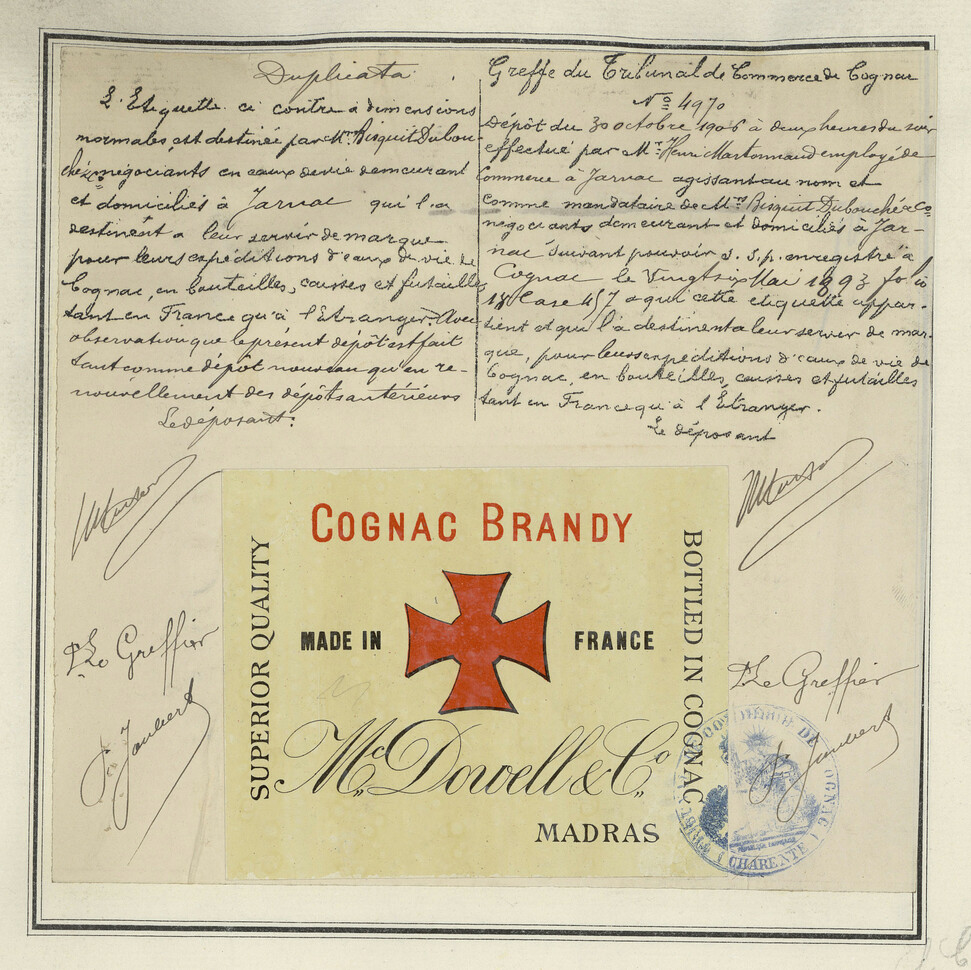 Duplicata
L'Etiquette ci contre à dimensions
normales, est destinée par Mrs Bisquit Dubou-
ché & Co négociants en eaux de vie demeurant
et domiciliés à Jarnac qui l'a
destinent a leur servir de marque
pour leurs expéditions d'eaux de vie de
Cognac, en bouteilles, caisses et futailles
tant en France qu'à l'Etranger. Avec
observation que le présent dépôt est fait
tant comme dépôt nouveau qu'en re-
nouvellement des dépôts antérieurs
Le déposant.
Greffe du Tribunal de Commerce de Cognac
No 4970
Dépôt du 30 octobre 1906 à deux heures du soir
effectué par Mr Henri Martonnaud employé de
Commerce à Jarnac agissant au nom et
comme mandataire de Mrs Bisquit Dubouché & Co
négociants demeurant et domiciliés à Jar-
nac suivant pouvoir s. s. p. enregistré à
Cognac le Vingt six Mai 1893 folio
18 Case 457 a qui cette etiquette appar-
tient et qui l'a destinent a leur servir de mar-
que, pour leurs expéditions d'eaux de vie de
Cognac, en bouteilles, caisses et futailles
tant en France qu'à l'Étranger.
Le déposant
Le Greffier
J. Jaubert
COGNAC BRANDY
SUPERIOR QUALITY
MADE IN FRANCE
BOTTLED IN COGNAC
Mc Dowell & Co
MADRAS
Le Greffier
J. Jaubert
COMMERCE DE COGNAC
CHARENTE